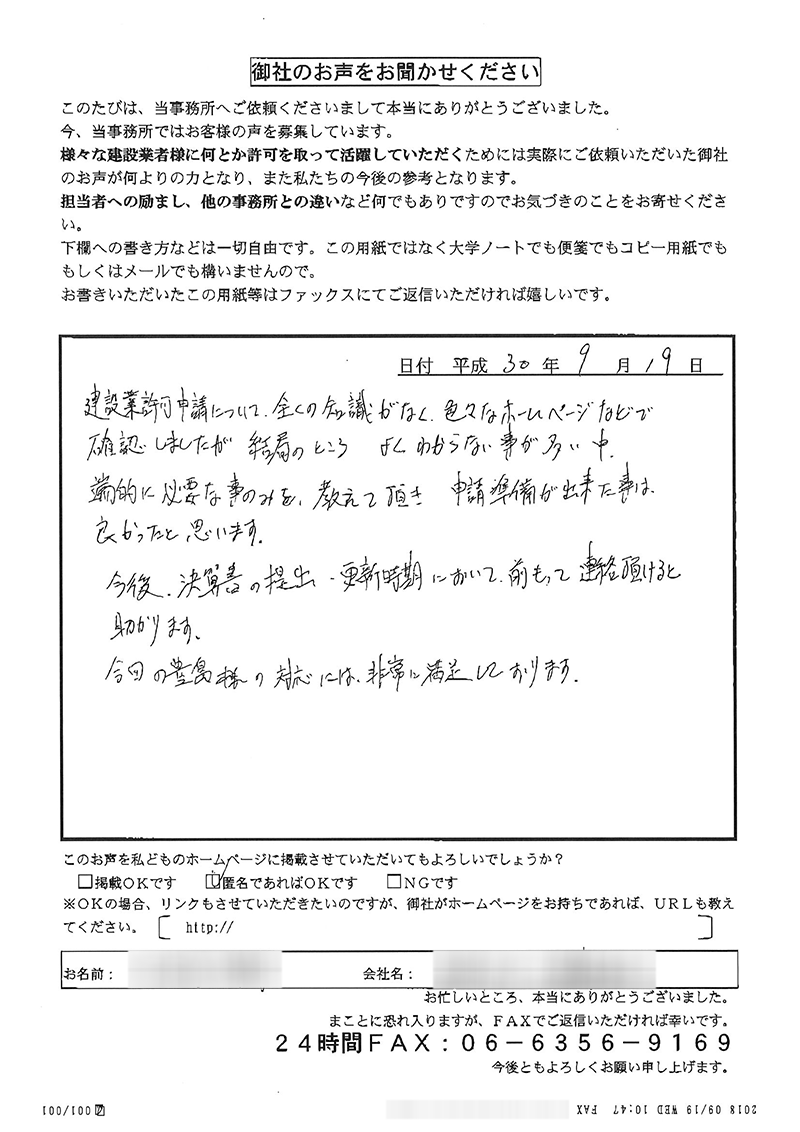 御社のお声をお聞かせください
このたびは、当事務所へご依頼くださいまして本当にありがとうございました。
今、当事務所ではお客様の声を募集しています。
様々な建設業者様に何とか許可を取って活躍していただくためには実際にご依頼いただいた御社
のお声が何よりの力となり、また私たちの今後の参考となります。
担当者への励まし、他の事務所との違いなど何でもありですのでお気づきのことをお寄せくださ
い。
下欄への書き方などは一切自由です。この用紙ではなく大学ノートでも便箋でもコピー用紙でも
もしくはメールでも構いませんので。
お書きいただいたこの用紙等はファックスにてご返信いただければ嬉しいです。
日付 平成 30 年 9 月 19 日
建設業許可申請について、全くの知識がなく、色々なホームページなどで
確認しましたが 結局のところ よくわからない事が多い中、
端的に必要な事のみを、教えて頂き 申請準備が出来た事は、
良かったと思います。
今後、決算書の提出・更新時期において、前もって連絡頂けると
助かります。
今回の豊島様の対応には、非常に満足しております。
このお声を私どものホームページに掲載させていただいてもよろしいでしょうか？
□掲載OKです □匿名であればOKです □NGです
※OKの場合、リンクもさせていただきたいのですが、御社がホームページをお持ちであれば、URLも教え
てください。［ http:// ］
お名前： 会社名：
お忙しいところ、本当にありがとうございました。
まことに恐れ入りますが、FAXでご返信いただければ幸いです。
24時間FAX：06-6356-9169
今後ともよろしくお願い申し上げます。
2018 09/19 WED 10:47 FAX
001/001